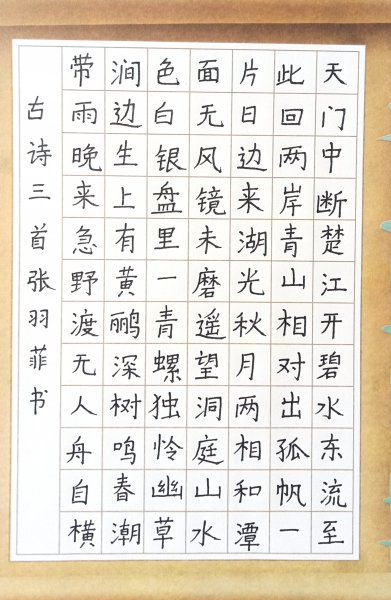 天门中断楚江开碧水东流至
此回两岸青山相对出孤帆一
片日边来湖光秋月两相和潭
面无风镜未磨遥望洞庭山水
色白银盘里一青螺独怜幽草
涧边生上有黄鹂深树鸣春潮
带雨晚来急野渡无人舟自横
古诗三首张羽菲书